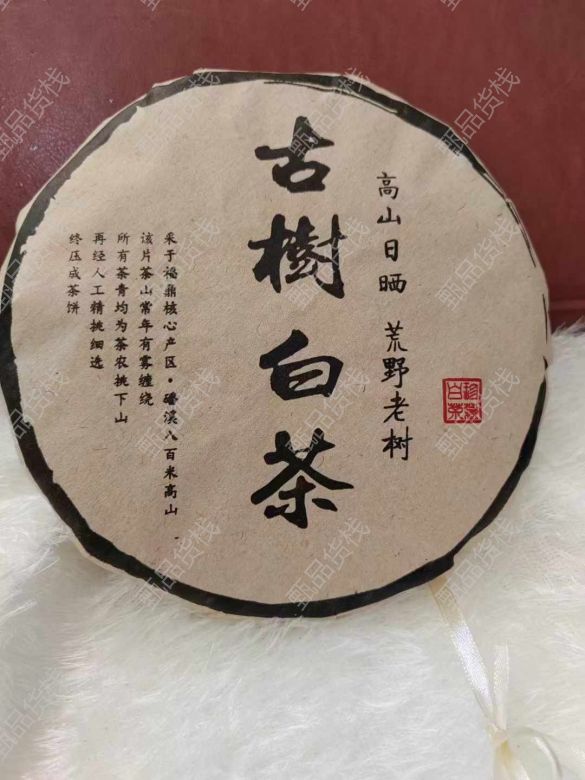 古樹白茶
高山日晒 荒野老树
珍藏白茶
采于福鼎核心产区·磻溪八百米高山.
该片茶山常年有雾缠绕
所有茶青均为茶农挑下山
再经人工精挑细选
终压成茶饼
甄品货栈